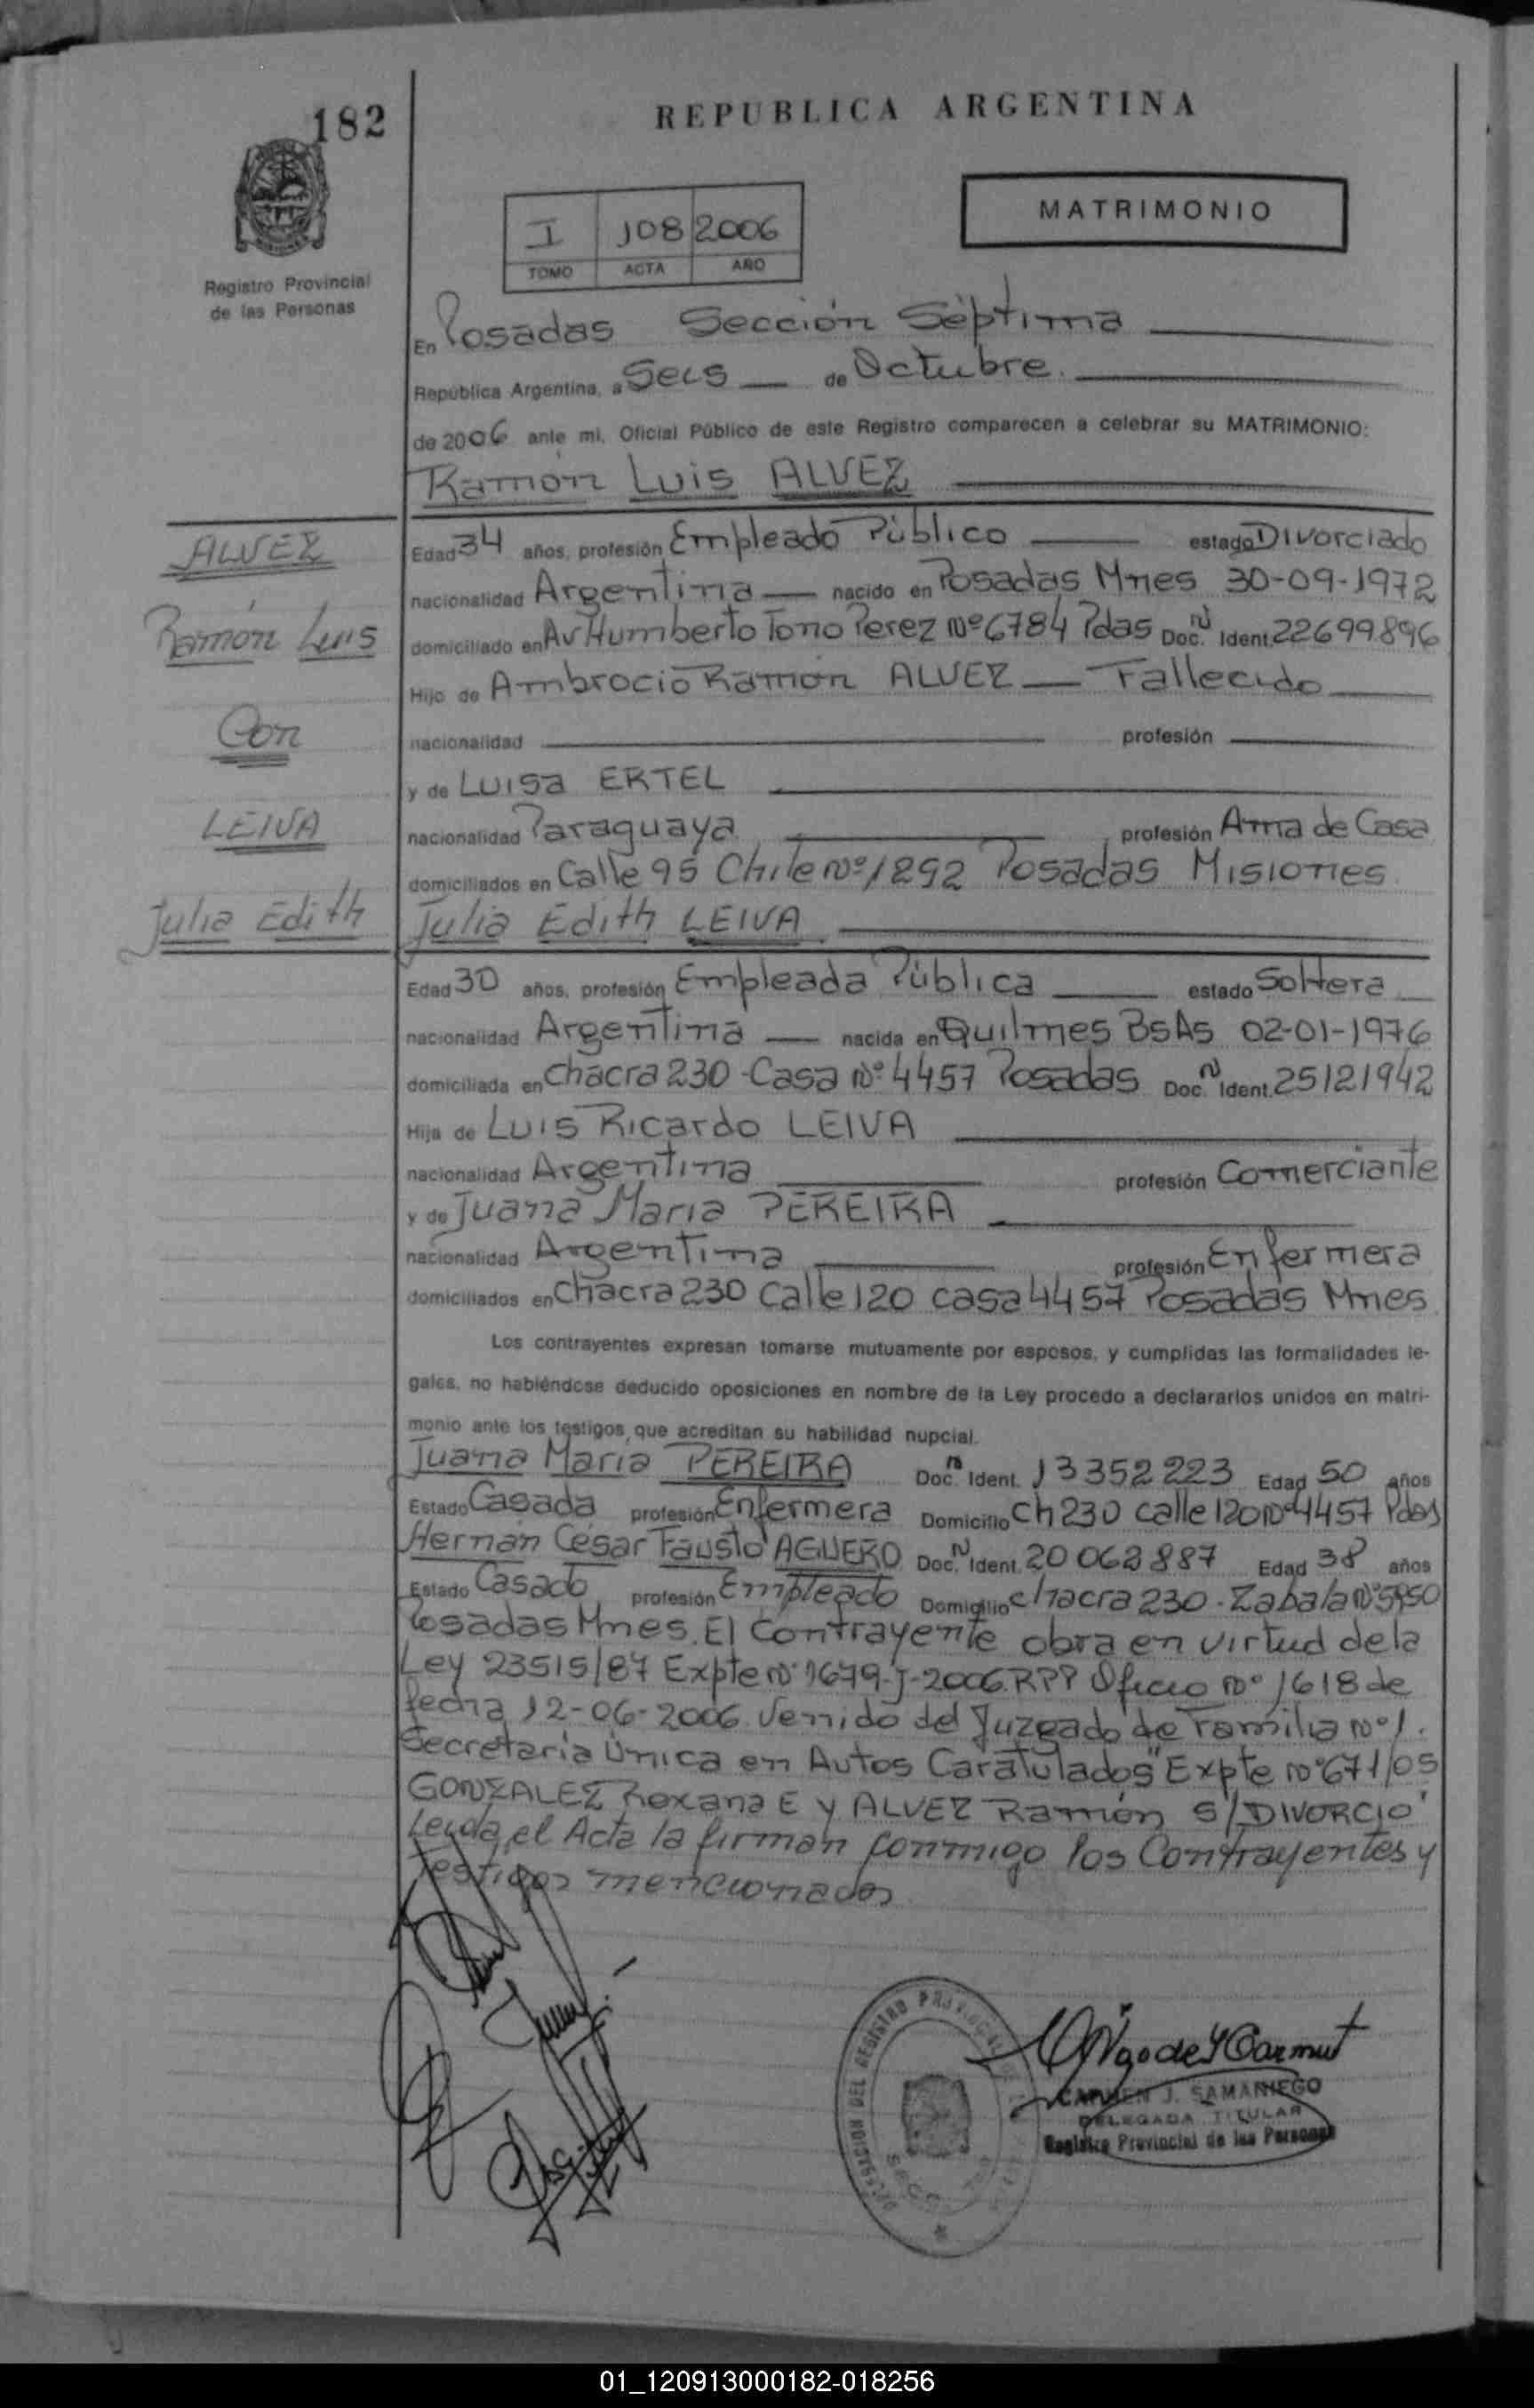 182
REPUBLICA ARGENTINA
MATRIMONIO
I 108 2006
TOMO ACTA AÑO
Registro Provincial
de las Personas
En Posadas Sección Séptima
República Argentina, a Seis de Octubre.
de 2006 ante mi, Oficial Público de este Registro comparecen a celebrar su MATRIMONIO:
Ramón Luis ALVEZ
ALVEZ
Ramón Luis
Con
LEIVA
Julia Edith
Edad 34 años, profesión Empleado Público estado Divorciado
nacionalidad Argentina nacido en Posadas Mnes 30-09-1972
domiciliado en Av Humberto Tomo Perez Nº 6784 Pdas Doc. N Ident. 22699896
Hijo de Ambrocio Ramón ALVEZ Fallecido
nacionalidad profesión
y de Luisa ERTEL
nacionalidad Paraguaya profesión Ama de Casa
domiciliados en Calle 95 Chile Nº 1892 Posadas Misiones
Julia Edith LEIVA
Edad 30 años, profesión Empleada Pública estado Soltera
nacionalidad Argentina nacida en Quilmes BsAs 02-01-1976
domiciliada en Chacra 230 - Casa Nº 4457 Posadas Doc. N Ident. 25121942
Hija de Luis Ricardo LEIVA
nacionalidad Argentina profesión Comerciante
y de Juana Maria PEREIRA
nacionalidad Argentina profesión Enfermera
domiciliados en Chacra 230 Calle 120 casa 4457 Posadas Mnes
Los contrayentes expresan tomarse mutuamente por esposos, y cumplidas las formalidades le-
gales, no habiéndose deducido oposiciones en nombre de la Ley procedo a declararlos unidos en matri-
monio ante los testigos que acreditan su habilidad nupcial.
Juana Maria PEREIRA Doc. N Ident. 13352223 Edad 50 años
Estado Casada profesión Enfermera Domicilio Ch 230 calle 120 Nº 4457 Pdas
Hernán César Fausto AGUERO Doc. N Ident. 20062887 Edad 38 años
Estado Casado profesión Empleado Domicilio chacra 230 - Zabala Nº 5950
Posadas Mnes. El Contrayente obra en virtud de la
Ley 23515/87 Expte Nº 1679-J-2006. RPP Oficio Nº 1618 de
fecha 12-06-2006. Venido del Juzgado de Familia Nº 1.
Secretaría Única en Autos Caratulados "Expte Nº 671/05
GONZALEZ Roxana E y ALVEZ Ramón S/DIVORCIO"
Leida el Acta la firman conmigo los Contrayentes y
Testigos mencionados
DELEGACION DEL REGISTRO PROVINCIAL
CARMEN J. SAMARIEGO
DELEGADA TITULAR
Registro Provincial de las Personas
01_120913000182-018256